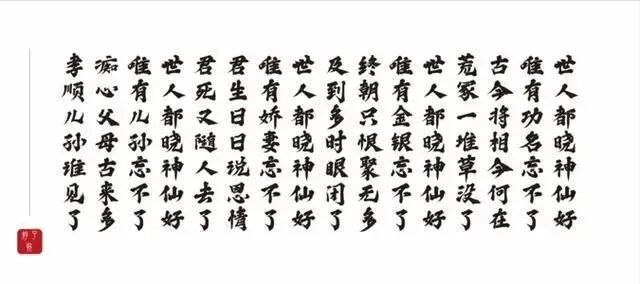 世人都晓神仙好
唯有功名忘不了
古今将相今何在
荒冢一堆草没了
世人都晓神仙好
唯有金银忘不了
终朝只恨聚无多
及到多时眼闭了
世人都晓神仙好
唯有娇妻忘不了
君生日日说思情
君死又随人去了
世人都晓神仙好
唯有儿孙忘不了
痴心父母古来多
孝顺儿孙谁见了